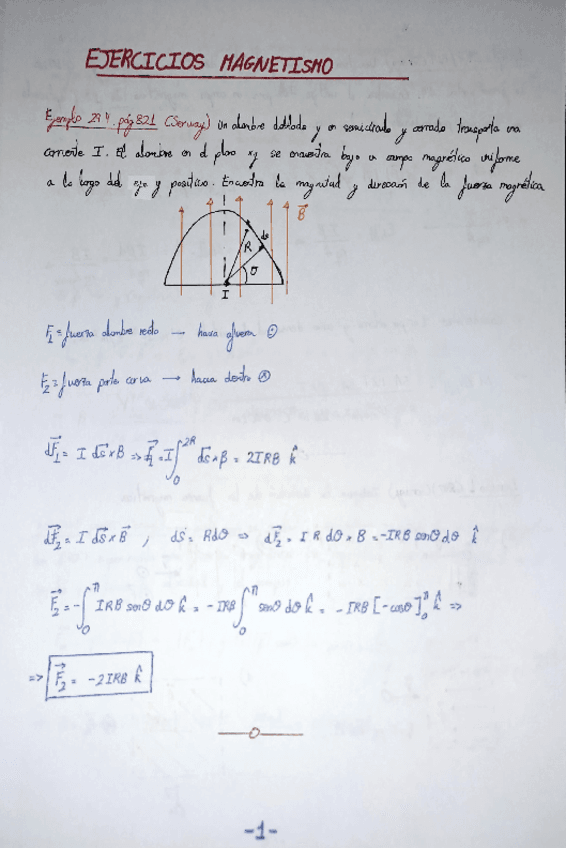 EJERCICIOS MAGNETISMO
Ejemplo 29.4. pág 821 (Serway) Un alambre doblado y en semicírculo y cerrado transporta una
corriente I. El alambre en el plano xy se encuentra bajo un campo magnético uniforme
a lo largo del eje y positivo. Encuentra la magnitud y dirección de la fuerza magnética
B⃗
ds
R
θ
I
F₁ = fuerza alambre recto → hacia afuera ⊙
F₂ = fuerza parte curva → hacia dentro ⊗
dF⃗₁ = I ds⃗ × B ⇒ F⃗₁ = I ∫₀^2R ds⃗ × B = 2IRB k̂
dF⃗₂ = I ds⃗ × B⃗ , ds = Rdθ ⇒ dF⃗₂ = I R dθ × B = -IRB senθ dθ k̂
F⃗₂ = -∫₀^π IRB senθ dθ k̂ = -IRB ∫₀^π senθ dθ k̂ = -IRB [-cosθ]₀^π k̂ ⇒
⇒ F⃗₂ = -2IRB k̂
-1-